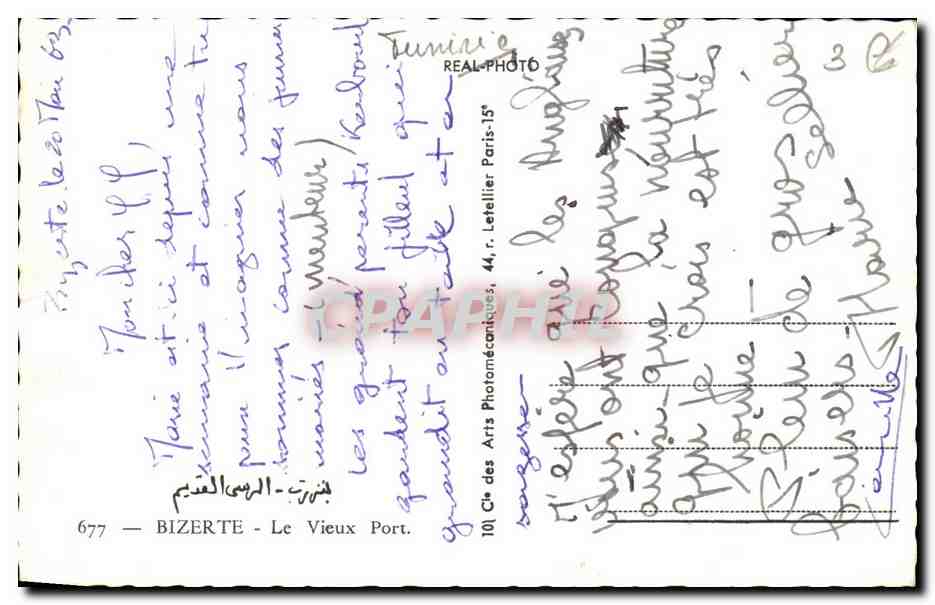 Tunisie
REAL-PHOTO
Bizerte le 20 Mai 63
Mon cher P.P,
Marie est ici depuis une
semaine et comme tu
peux l'imaginer nous
sommes comme des jeunes
mariés - (menteur)
Les grands parents
gardent ton filleul qui
grandit en taille et en
sagesse
J'espère que les Anglaises
vous ont
ainsi que la nourriture
qui je crois est très
bonne -
Reçu de gros
baisers -
Marie
10) Cie des Arts Photomécaniques, 44, r. Letellier Paris-15e
CPAPHIL
بنزرت - المرسى القديم
677 — BIZERTE - Le Vieux Port.